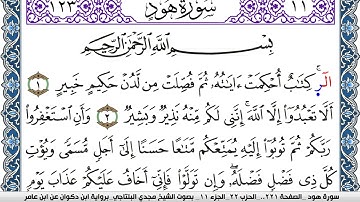 ١٢٣ سُورَةُ هُودٍ ١١
بِسْمِ اللَّهِ الرَّحْمَٰنِ الرَّحِيمِ
الٓر ۚ كِتَٰبٌ أُحْكِمَتْ ءَايَٰتُهُۥ ثُمَّ فُصِّلَتْ مِن لَّدُنْ حَكِيمٍ خَبِيرٍ ١
أَلَّا تَعْبُدُوٓا۟ إِلَّا ٱللَّهَ ۚ إِنَّنِى لَكُم مِّنْهُ نَذِيرٌ وَبَشِيرٌ ٢ وَأَنِ ٱسْتَغْفِرُوا۟
رَبَّكُمْ ثُمَّ تُوبُوٓا۟ إِلَيْهِ يُمَتِّعْكُم مَّتَٰعًا حَسَنًا إِلَىٰٓ أَجَلٍ مُّسَمًّى وَيُؤْتِ
كُلَّ ذِى فَضْلٍ فَضْلَهُۥ ۖ وَإِن تَوَلَّوْا۟ فَإِنِّىٓ أَخَافُ عَلَيْكُمْ عَذَابَ يَوْمٍ
سورة هود _الصفحة ٢٢١_ الحزب ٢٢ _ الجزء ١١ _ بصوت الشيخ مجدي البلتاجي _برواية ابن ذكوان عن ابن عامر